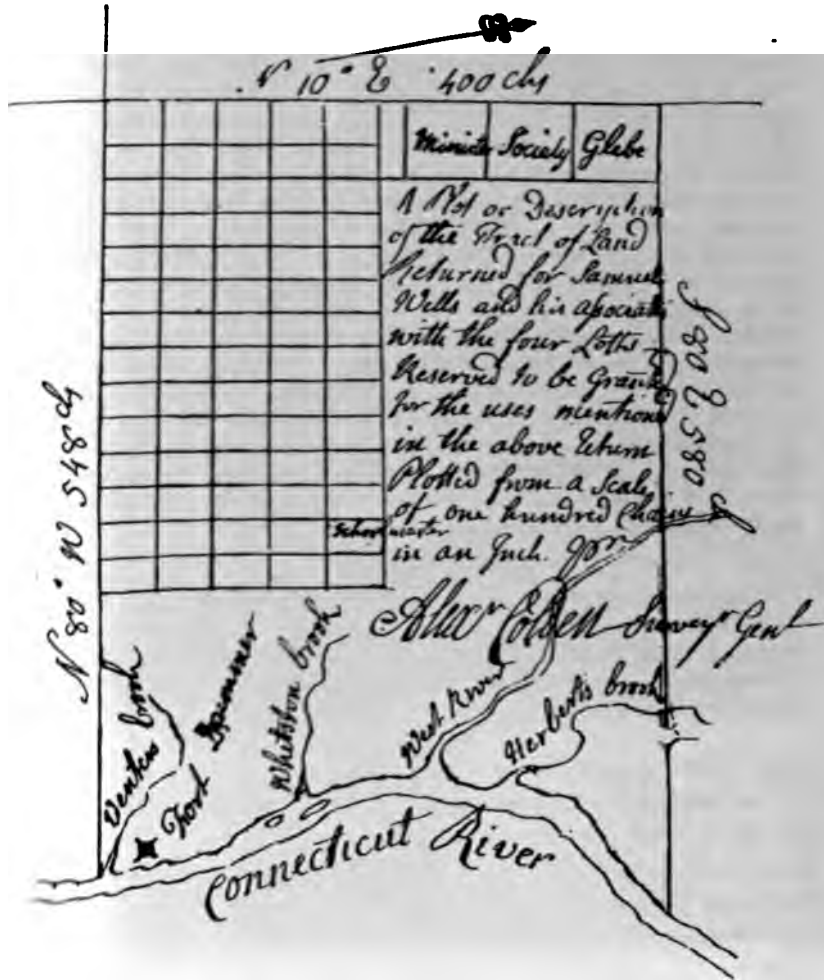 N 10° E 400 chs
Minister Society Glebe
A Plot or Description
of the Tract of Land
Returned for Samuel
Wells and his associats
with the four Lotts
Reserved to be Granted
for the uses mentioned
in the above Return
Plotted from a Scale
of one hundred Chains
in an Inch. Pr
School master
Alexr Colden Surveyr Genl
N 80° W 548 chs
S 80 E 580
Venters brook
Fort Dummer
Whitston brook
West River
Herberts brook
Connecticut River